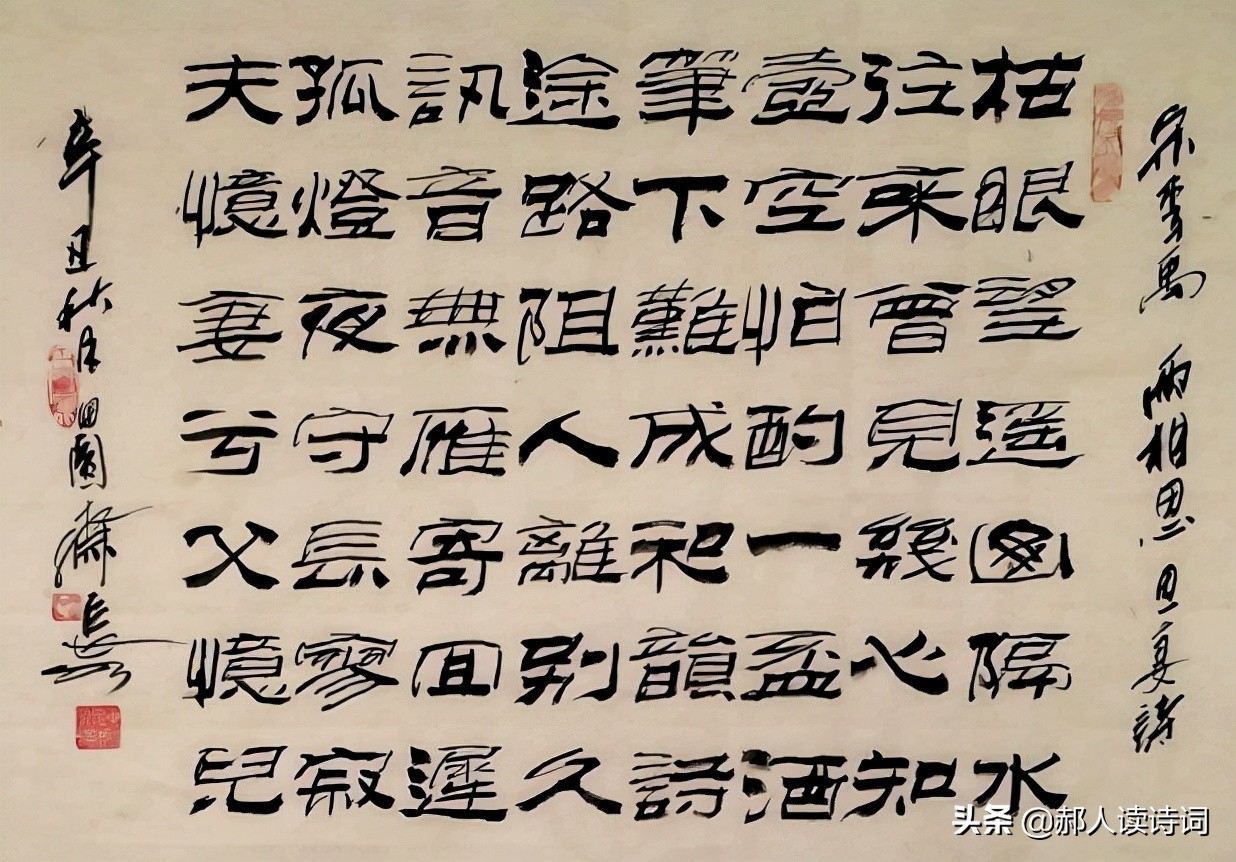 宋李禹 兩相思 思妻詩
枯眼望遥山隔水
往來曾見幾心知
壺空怕酌一盃酒
筆下難成和韻詩
途路阻人離别久
訊音無雁寄回遲
孤燈夜守長寥寂
夫憶妻兮父憶兒
辛丑秋月田園齋
头条 @郝人读诗词